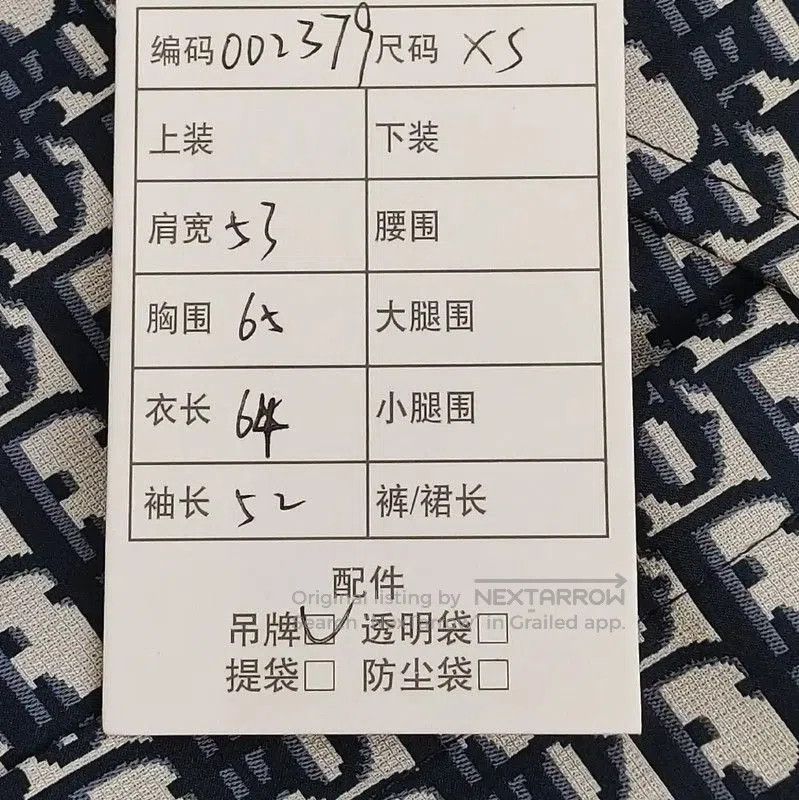 编码 002379 尺码 XS
上装 下装
肩宽 53 腰围
胸围 65 大腿围
衣长 64 小腿围
袖长 52 裤/裙长
配件
Original listing by NEXTARROW
吊牌 透明袋□
Search "Nextarrow" in Grailed app.
提袋□ 防尘袋□